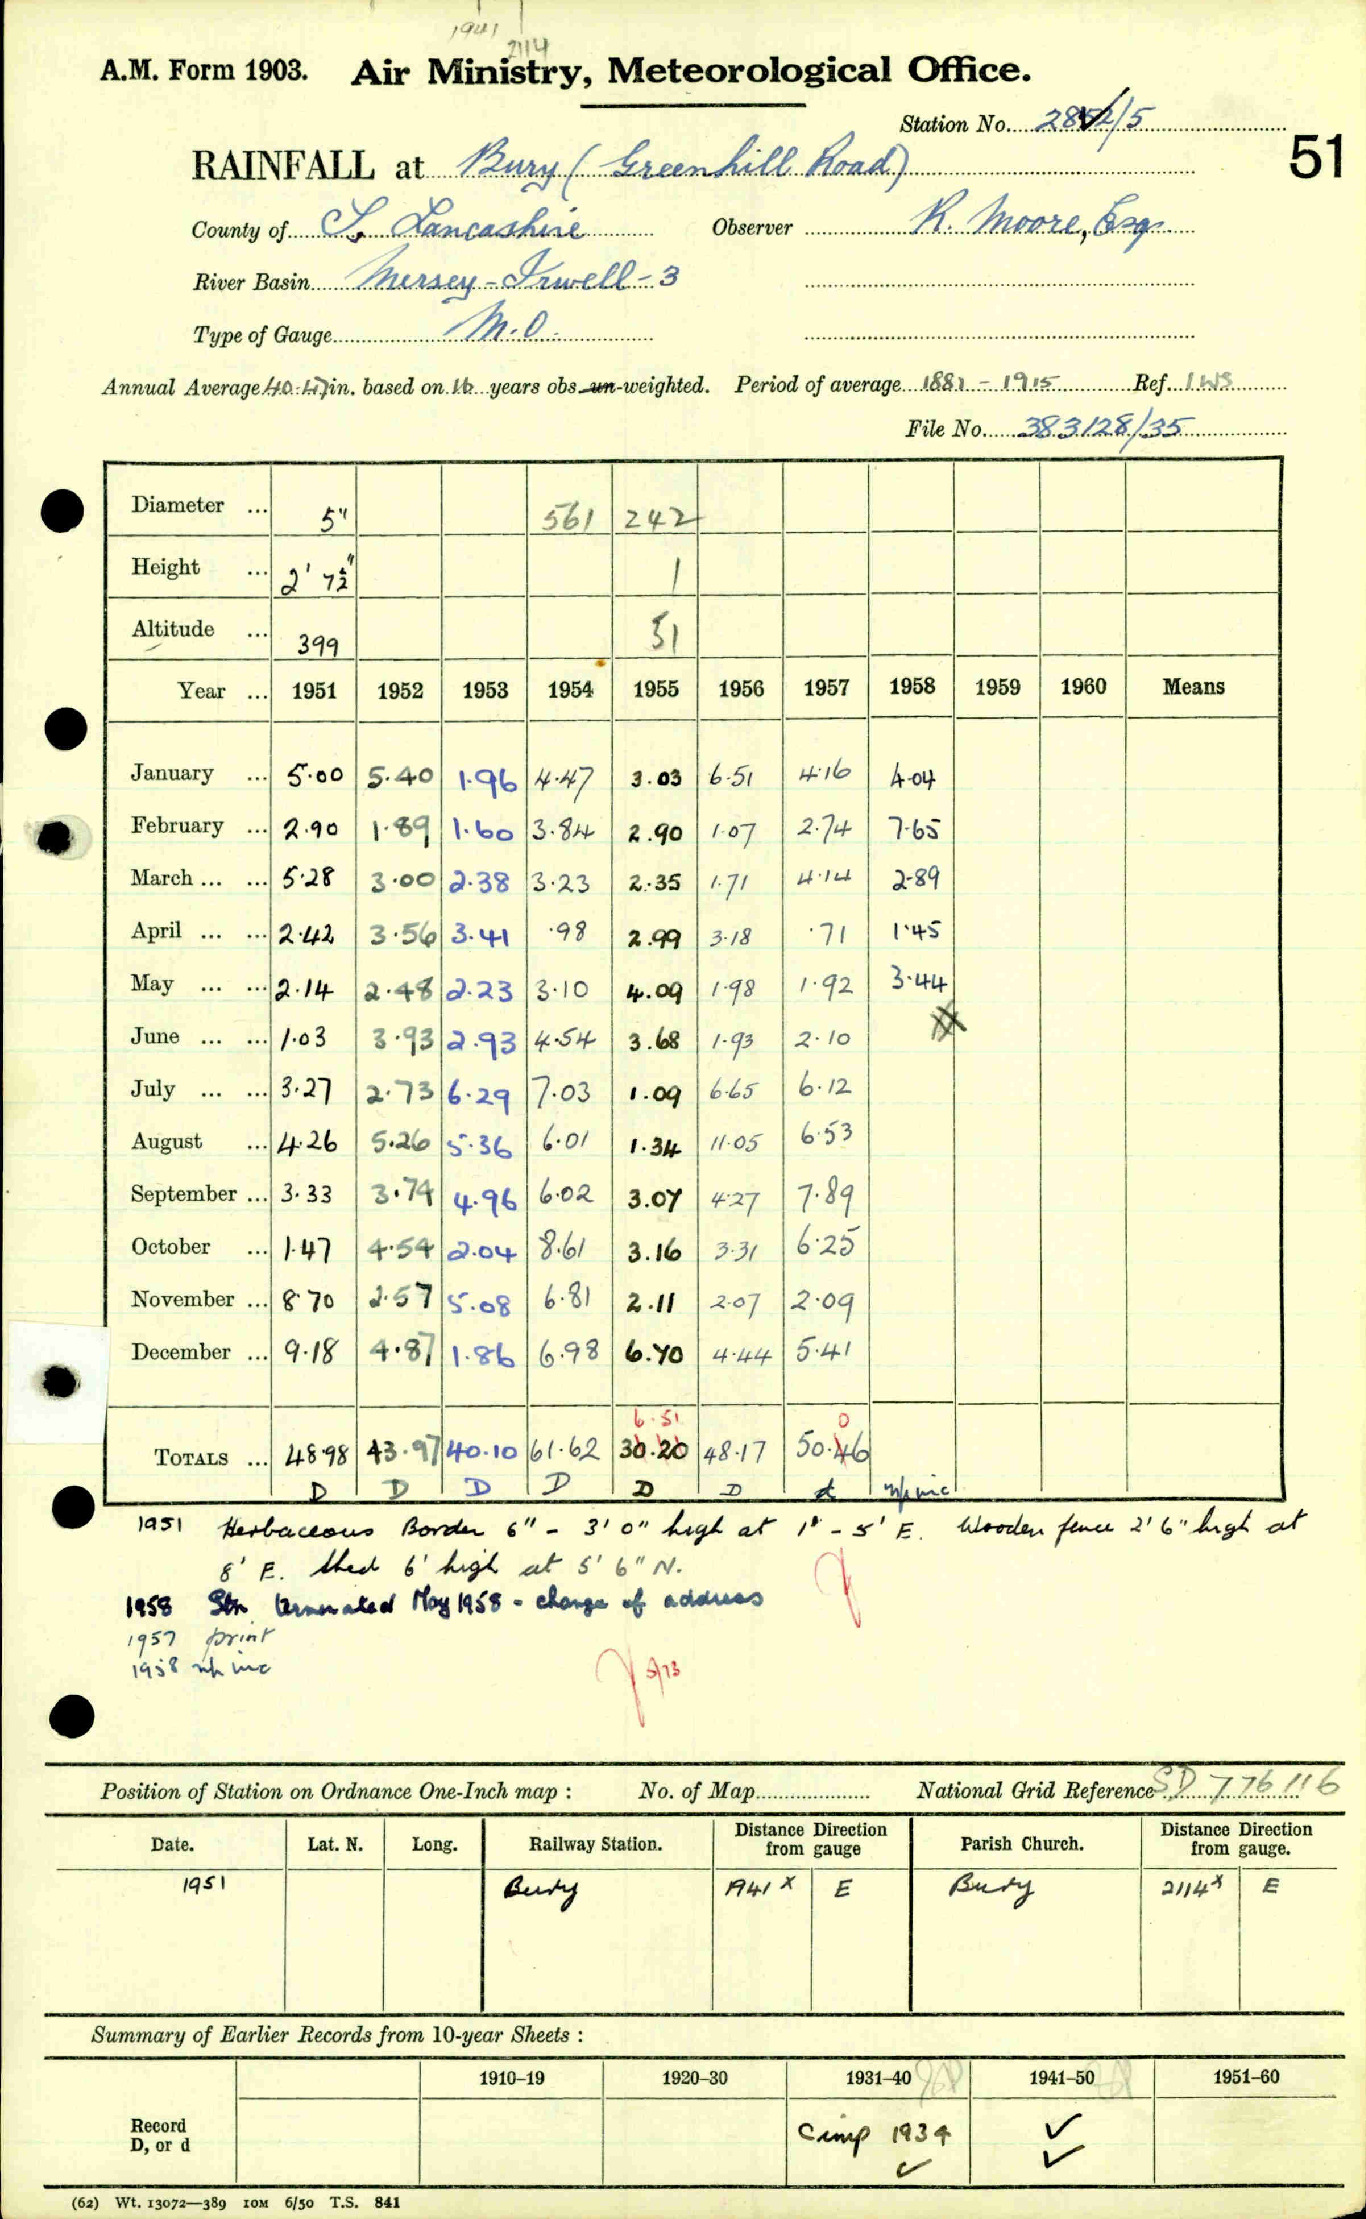 1941
2114
A.M. Form 1903. Air Ministry, Meteorological Office.
Station No. 2852/5
51
RAINFALL at Bury (Greenhill Road)
County of S. Lancashire Observer R. Moore, Esq.
River Basin Mersey - Irwell - 3
Type of Gauge M.O.
Annual Average 40.47 in. based on 16 years obs un-weighted. Period of average 1881 - 1915 Ref. IWS
File No. 383128/35
Diameter ... 5" 561 242
Height ... 2' 7½" 1
Altitude ... 399 51
Year ... 1951 1952 1953 1954 1955 1956 1957 1958 1959 1960 Means
January ... 5.00 5.40 1.96 4.47 3.03 6.51 4.16 4.04
February ... 2.90 1.89 1.60 3.84 2.90 1.07 2.74 7.65
March ... ... 5.28 3.00 2.38 3.23 2.35 1.71 4.14 2.89
April ... ... 2.42 3.56 3.41 .98 2.99 3.18 .71 1.45
May ... ... 2.14 2.48 2.23 3.10 4.09 1.98 1.92 3.44
June ... ... 1.03 3.93 2.93 4.54 3.68 1.93 2.10
July ... ... 3.27 2.73 6.29 7.03 1.09 6.65 6.12
August ... 4.26 5.26 5.36 6.01 1.34 11.05 6.53
September ... 3.33 3.74 4.96 6.02 3.07 4.27 7.89
October ... 1.47 4.54 2.04 8.61 3.16 3.31 6.25
November ... 8.70 2.57 5.08 6.81 2.11 2.07 2.09
December ... 9.18 4.87 1.86 6.98 6.70 4.44 5.41
6.51 0
TOTALS ... 48.98 43.97 40.10 61.62 30.20 48.17 50.46
D D D D D D d n/p inc
1951 Herbaceous Border 6" - 3' 0" high at 1' - 5' E. Wooden fence 2' 6" high at
8' E. Shed 6' high at 5' 6" N.
1958 Stn terminated May 1958 - change of address
1957 print
1958 n/p inc
5/73
Position of Station on Ordnance One-Inch map : No. of Map National Grid Reference SD 776116
Date. Lat. N. Long. Railway Station. Distance Direction from gauge Parish Church. Distance Direction from gauge.
1951 Bury 1941 x E Bury 2114 x E
Summary of Earlier Records from 10-year Sheets :
1910–19 1920–30 1931–40 1941–50 1951–60
Record
D, or d
Cimp 1934 ✓
✓ ✓
(62) Wt. 13072—389 10M 6/50 T.S. 841